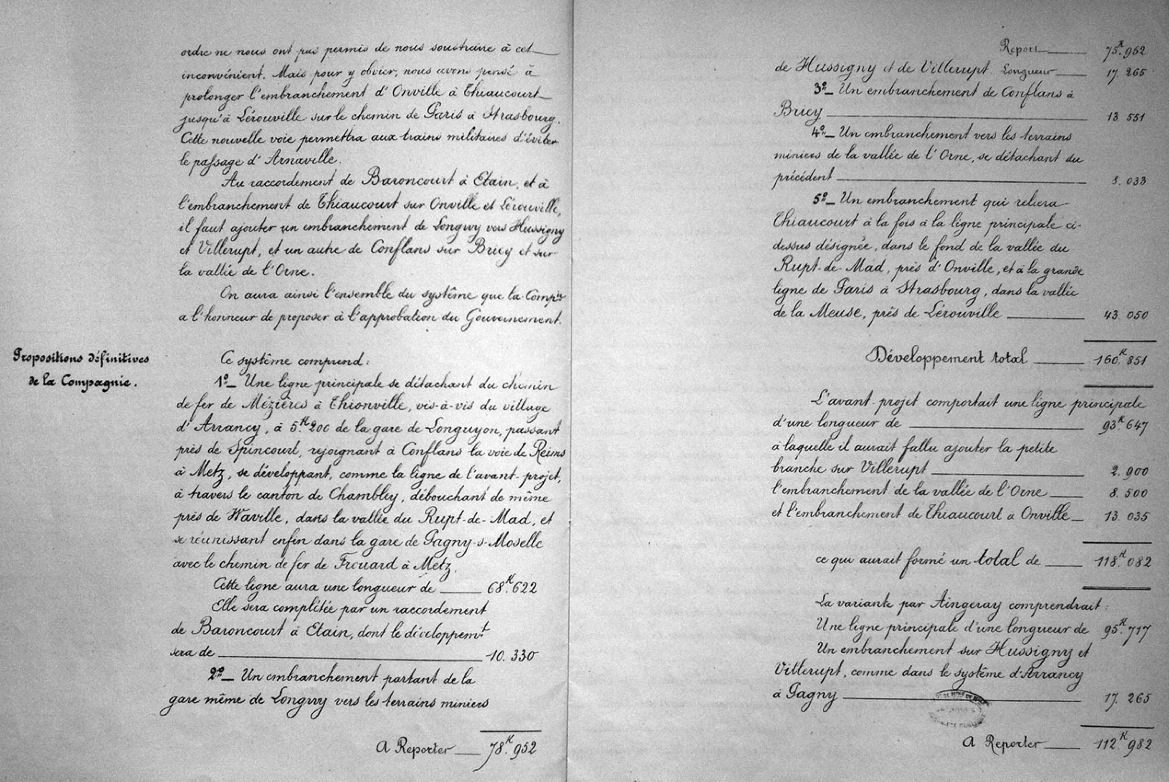 ordre ne nous ont pas permis de nous soustraire à cet
inconvénient. Mais pour y obvier, nous avons pensé à
prolonger l'embranchement d'Onville à Thiaucourt
jusqu'à Lérouville sur le chemin de Paris à Strasbourg.
Cette nouvelle voie permettra aux trains militaires d'éviter
le passage d'Arnaville.
Au raccordement de Baroncourt à Etain, et à
l'embranchement de Thiaucourt sur Onville et Lérouville,
il faut ajouter un embranchement de Longwy vers Hussigny
et Villerupt, et un autre de Conflans sur Briey et sur
la vallée de l'Orne.
On aura ainsi l'ensemble du système que la Compie
a l'honneur de proposer à l'approbation du Gouvernement.
Propositions définitives
de la Compagnie.
Ce système comprend:
1º_ Une ligne principale se détachant du chemin
de fer de Mézières à Thionville, vis-à-vis du village
d'Arrancy, à 5.K 200 de la gare de Longuyon, passant
près de Spincourt, rejoignant à Conflans la voie de Reims
à Metz, se développant, comme la ligne de l'avant-projet,
à travers le canton de Chambley, débouchant de même
près de Waville, dans la vallée du Rupt-de-Mad, et
se réunissant enfin dans la gare de Pagny-s-Moselle
avec le chemin de fer de Frouard à Metz.
Cette ligne aura une longueur de ____ 68.K 622
Elle sera complétée par un raccordement
de Baroncourt à Etain, dont le développemt
sera de ____ 10. 330
2º_ Un embranchement partant de la
gare même de Longwy vers les terrains miniers
A Reporter ____ 78.K 952
Report ____ 78.K 952
de Hussigny et de Villerupt Longueur ____ 17. 265
3º_ Un embranchement de Conflans à
Briey ____ 13 551
4º_ Un embranchement vers les terrains
miniers de la vallée de l'Orne, se détachant du
précédent ____ 8. 033
5º_ Un embranchement qui reliera
Thiaucourt à la fois à la ligne principale ci-
dessus désignée, dans le fond de la vallée du
Rupt-de-Mad, près d'Onville, et à la grande
ligne de Paris à Strasbourg, dans la vallée
de la Meuse, près de Lérouville ____ 43 050
Développement total ____ 160.K 851
L'avant-projet comportait une ligne principale
d'une longueur de ____ 93.K 647
à laquelle il aurait fallu ajouter la petite
branche sur Villerupt ____ 2. 900
l'embranchement de la vallée de l'Orne ____ 8. 500
et l'embranchement de Thiaucourt à Onville _ 13. 035
ce qui aurait formé un total de ____ 118.K 082
La variante par Aingeray comprendrait:
Une ligne principale d'une longueur de 95.K 717
Un embranchement sur Hussigny et
Villerupt, comme dans le système d'Arrancy
à Pagny ____ 17. 265
A Reporter ____ 112.K 982